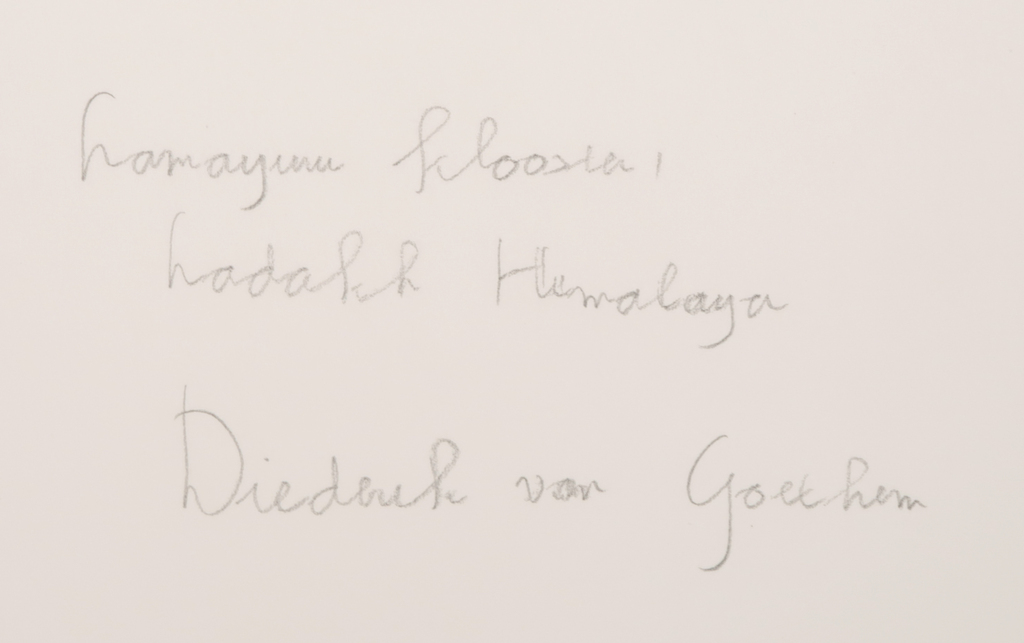 Lamayuru klooster,
Ladakh Himalaya
Diederik van Goethem